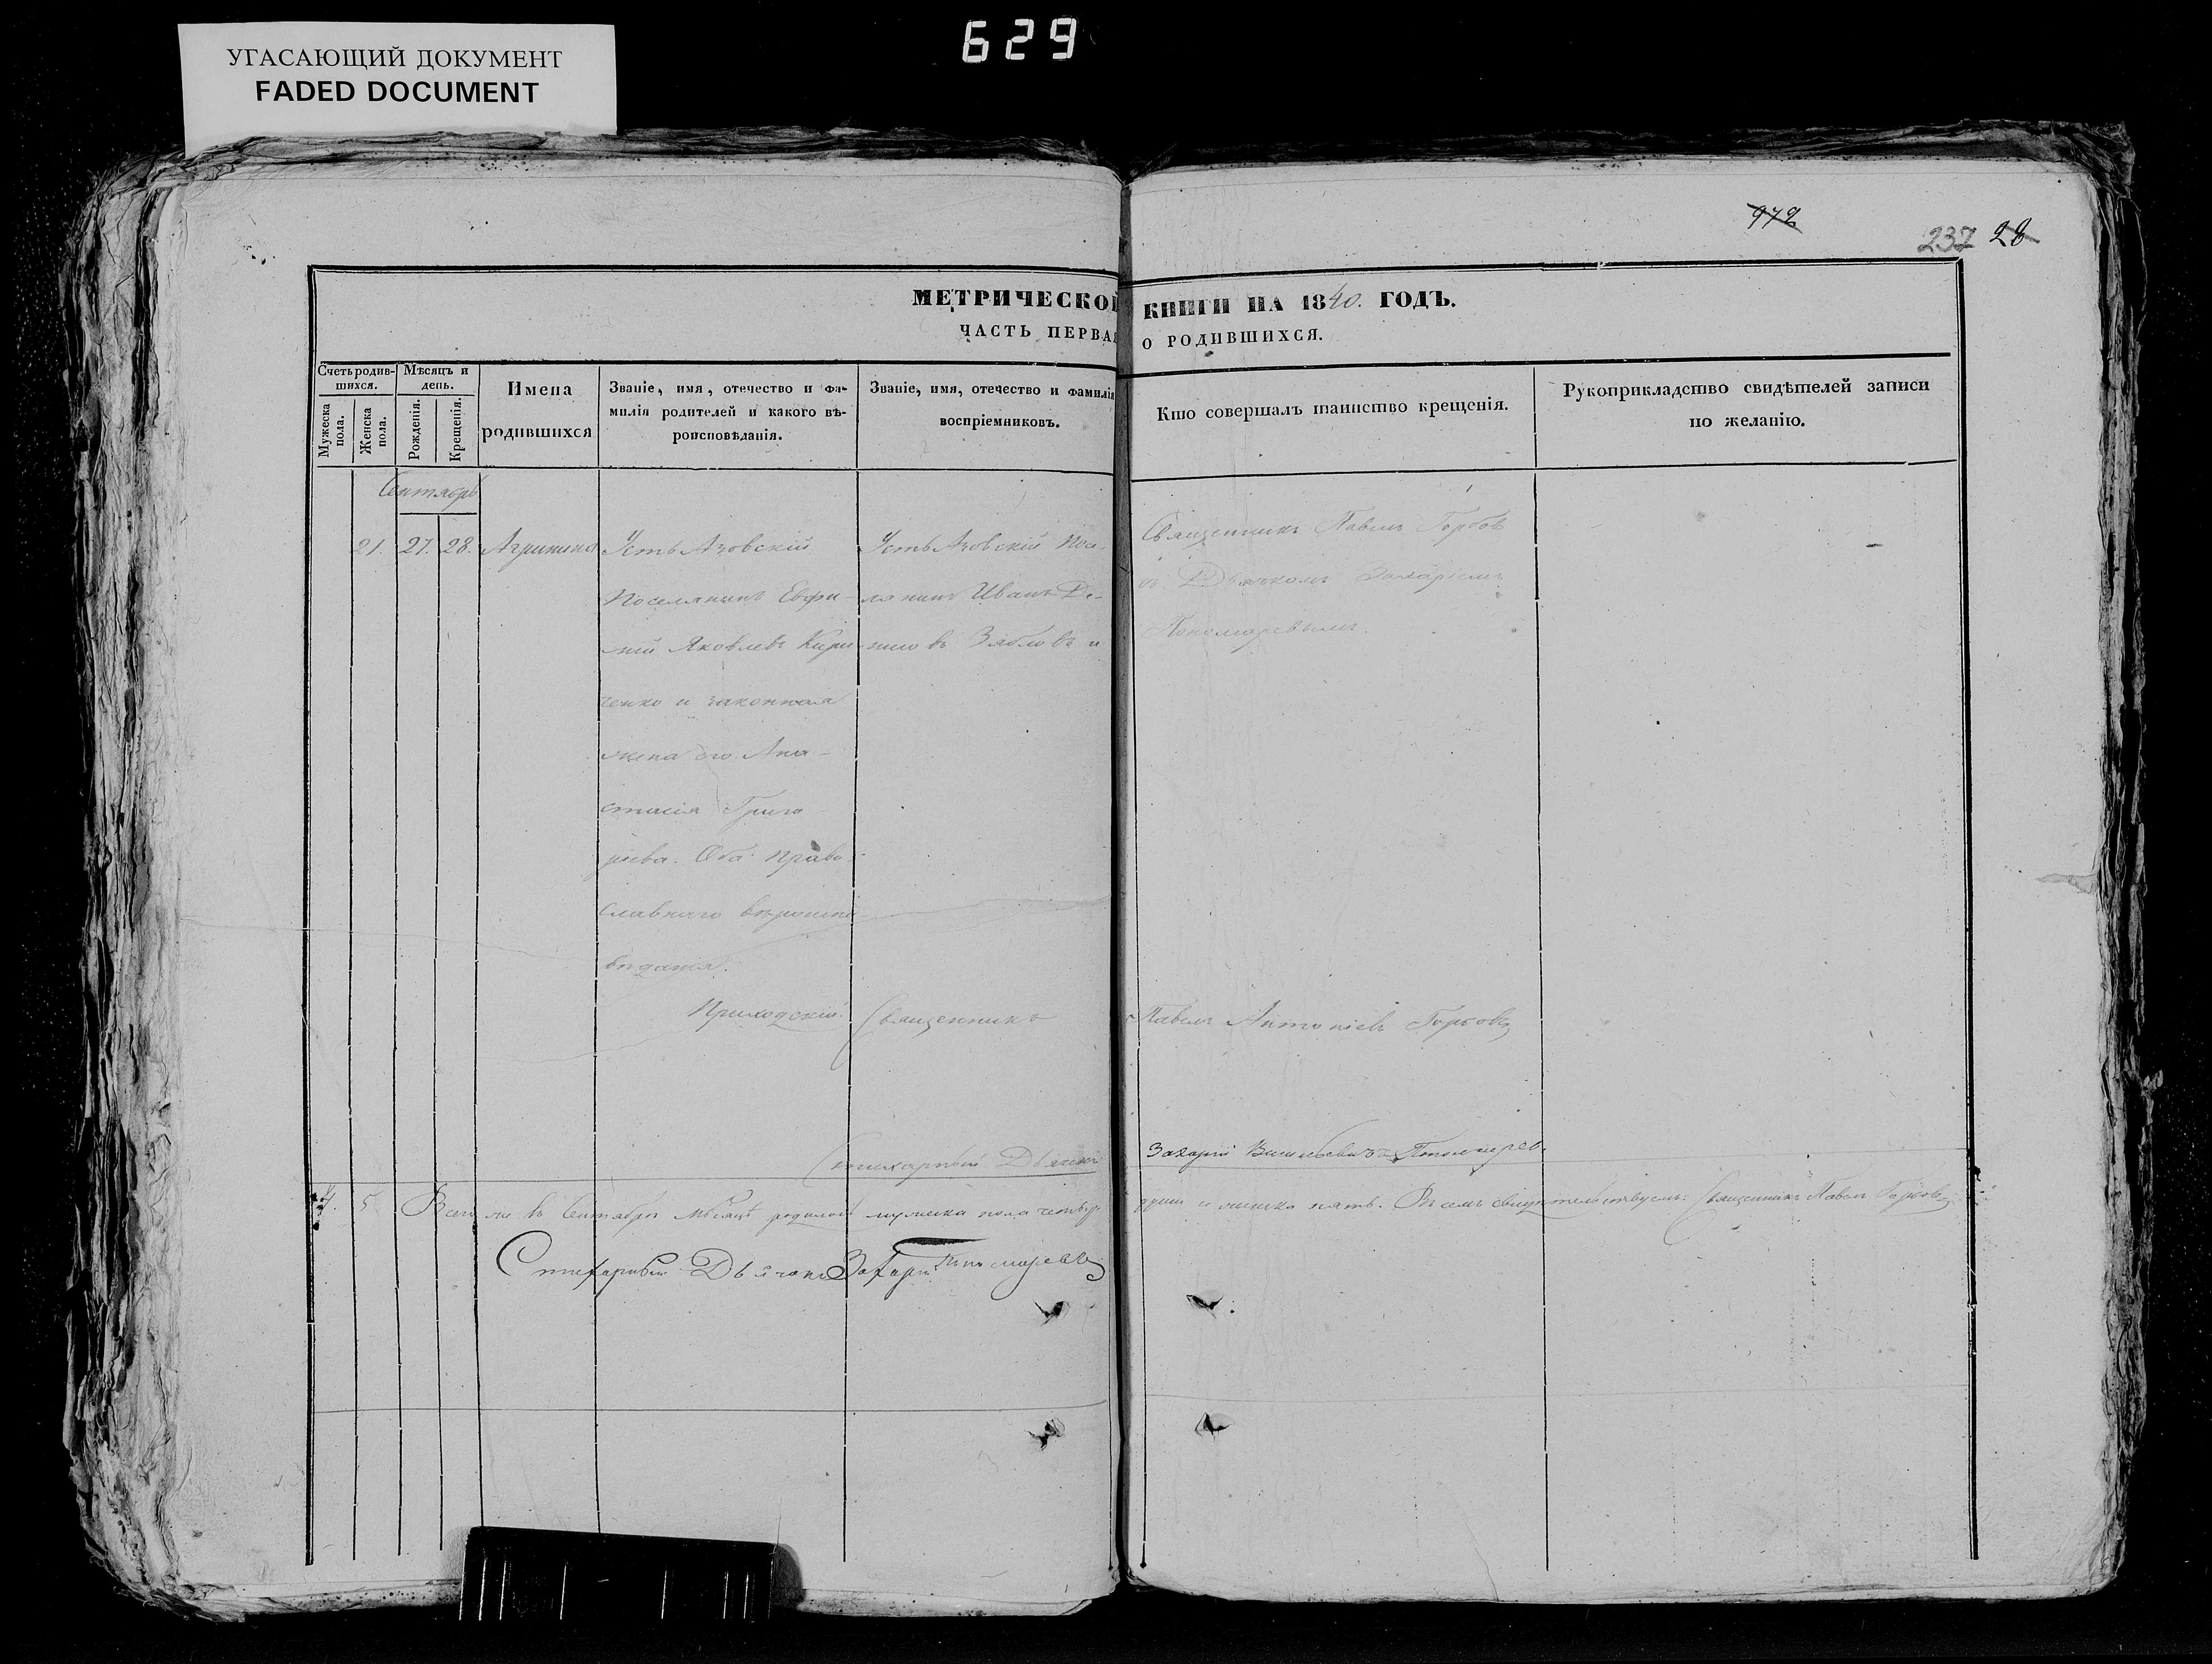 629
УГАСАЮЩИЙ ДОКУМЕНТ
FADED DOCUMENT
972
237 28
МЕТРИЧЕСКОЙ КНИГИ НА 1840. ГОДЪ.
ЧАСТЬ ПЕРВАЯ О РОДИВШИХСЯ.
Счетъ родив-
шихся.
Мужеска
пола.
Женска
пола.
Мѣсяцъ и
день.
Рожденія.
Крещенія.
Имена
родившихся
Званіе, имя, отечество и фа-
милія родителей и какого вѣ-
роисповѣданія.
Званіе, имя, отечество и фамилія
воспріемниковъ.
Кто совершалъ таинство крещенія.
Рукоприкладство свидѣтелей записи
по желанію.
Сентябрь
21. 27. 28. Агрипина
Усть Азовскій
Поселянинъ Евфи-
мій Яковлевъ Кири-
ченко и законная
жена его Ана-
стасія Григо
ріева. Оба право-
славнаго вѣроиспо
вѣданія.
Усть Азовскій посе-
лянинъ Иванъ
Зябловъ и
Священникъ Павелъ Горбовъ
съ Дьячкомъ Захаріемъ
Пономаревымъ.
Приходскій Священникъ Павелъ Антоніевъ Горбовъ
Стихарный Дьячекъ Захарій Пономаревъ
4. 5. Всего же въ Сентябрѣ Мѣсяцѣ родилось мужеска пола четыре души и женска пять. Въ семъ свидѣтельствуемъ: Священникъ Павелъ Горбовъ
Стихарный Дьячокъ Захарій Пономаревъ